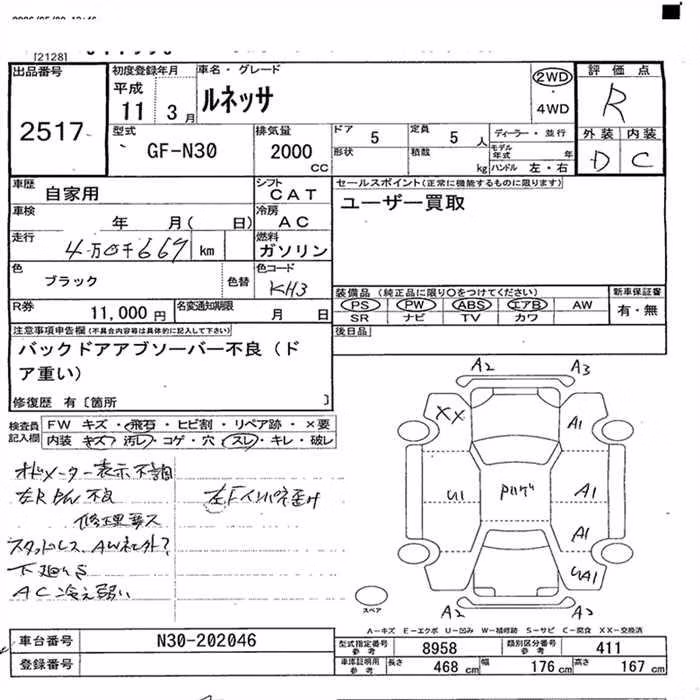 [2128]
出品番号
2517
初度登録年月
平成
11 3月
車名・グレード
ルネッサ
2WD
・
4WD
評価点
R
外装 内装
D C
型式
GF-N30
排気量
2000
CC
ドア 5
定員 5 人
ディーラー・並行
形状
積載 kg
モデル年式 年
ハンドル 左・右
車歴 自家用
シフト CAT
セールスポイント(正常に機能するものに限ります)
ユーザー買取
車検 年 月( 日)
冷房 AC
走行 4万0千669 km
燃料 ガソリン
色 ブラック
色替
色コード KH3
装備品 (純正品に限り○をつけてください)
新車保証書
有・無
PS PW ABS エアB AW
SR ナビ TV カワ
R券 11,000 円
名変通知期限 月 日
後日品
注意事項申告欄(不具合内容等は具体的に記入して下さい)
バックドアアブソーバー不良(ド
ア重い)
修復歴 有〔箇所 〕
検査員
記入欄
FW キズ・飛石・ヒビ割・リペア跡・×要
内装 キズ・汚レ・コゲ・穴・スレ・キレ・破レ
オドメーター表示不調
左R PW不良
左Fインパネ歪み
修理要ス
スタッドレス、AW社外?
下廻りS
AC冷え弱い
A2 A3
XX A1
U1 A1
A1
UA1
A2 A2
スペア
A-キズ E-エクボ U-凹み W-補修跡 S-サビ C-腐食 XX-交換済
車台番号 N30-202046
登録番号
型式指定番号参考 8958
類別区分番号参考 411
車庫証明用参考 長さ 468 cm 幅 176 cm 高さ 167 cm